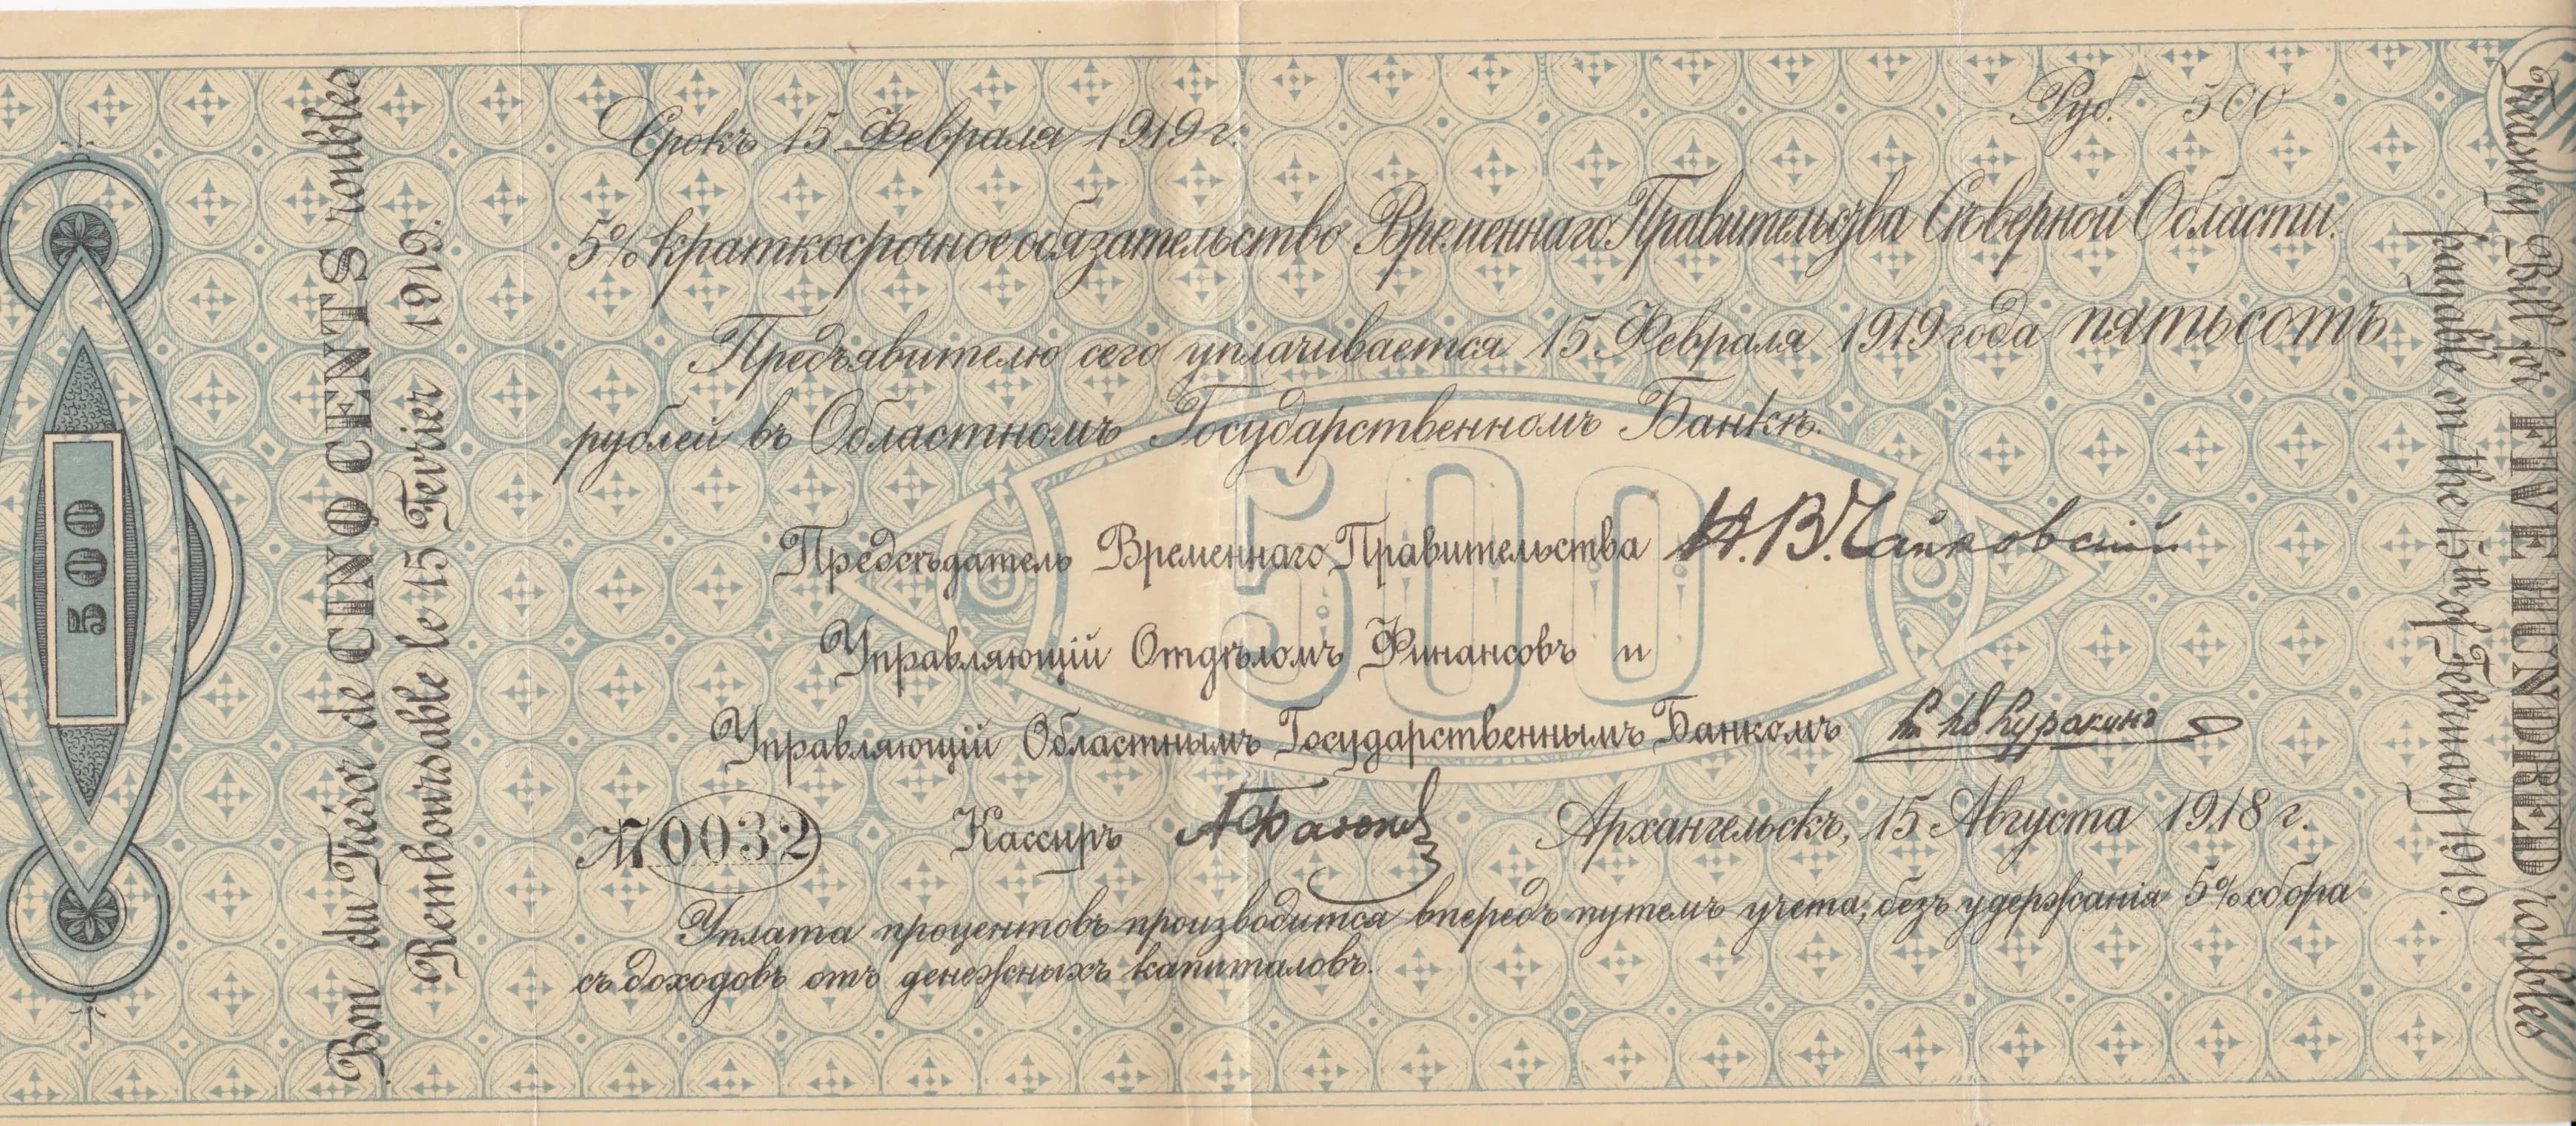 500
Bon du Trésor de CINQ CENTS roubles
Remboursable le 15 Fevrier 1919.
Срокъ 15 Февраля 1919 г.
Руб. 500
5% краткосрочное обязательство Временнаго Правительства Сѣверной Области.
Предъявителю сего уплачивается 15 Февраля 1919 года пятьсотъ
рублей въ Областномъ Государственномъ Банкѣ.
500
Предсѣдатель Временнаго Правительства Н.В.Чайковскій
Управляющій Отдѣломъ Финансовъ и
Управляющій Областнымъ Государственнымъ Банкомъ Куракинъ
№ 0032 Кассиръ Архангельскъ, 15 Августа 1918 г.
Уплата процентовъ производится впередъ путемъ учета, безъ удержанія 5% сбора
съ доходовъ отъ денежныхъ капиталовъ.
Treasury Bill for FIVE HUNDRED roubles
payable on the 15th of February 1919.